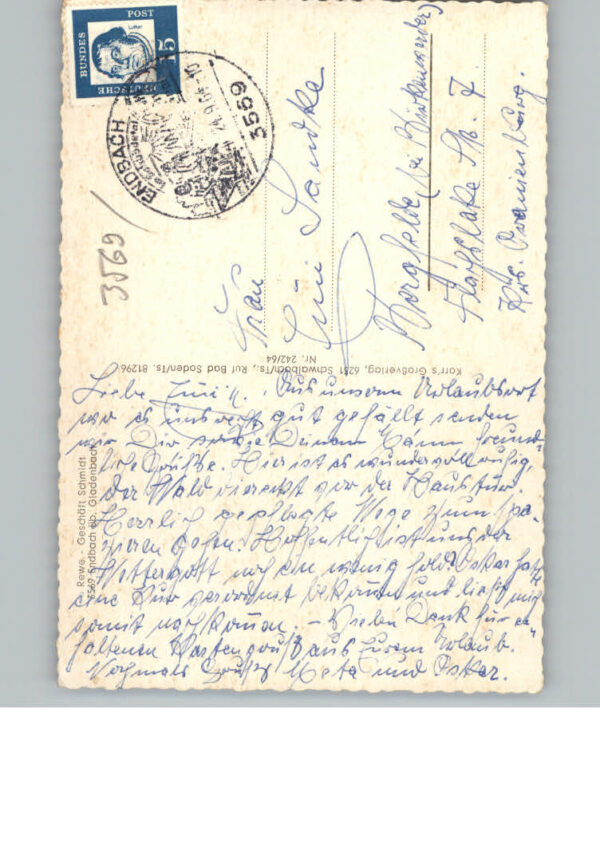 DEUTSCHE
BUNDES
POST
15
Luther
ENDBACH
24.9.64-10
3559
3569
Frau
Sandke
Bergfelde (b Birkenwerder)
Str. 7
Krs. Oranienburg.
Karr's Großverlag, 6231 Schwalbach/Ts., Ruf Bad Soden/Ts. 81296
Nr. 242/64
Rewe - Geschäft Schmidt
3569 Endbach üb. Gladenbach
Liebe Aus unserm Urlaubsort
wo es uns gut gefällt senden
wir Dir Deinem Mann freund-
liche Grüße. Hier ist es wundervoll ruhig,
der Wald direkt vor der Haustür.
Herrlich gepflegte Wege zum Spa-
zieren gehen. Hoffentlich ist uns der
Wettergott noch ein wenig hold. Oskar hatte
eine Kur verordnet bekommen und ließ mich
somit nachkommen. – Vielen Dank für er-
haltenen Kartengruß aus Eurem Urlaub.
Nochmals Grüße Meta und Oskar.